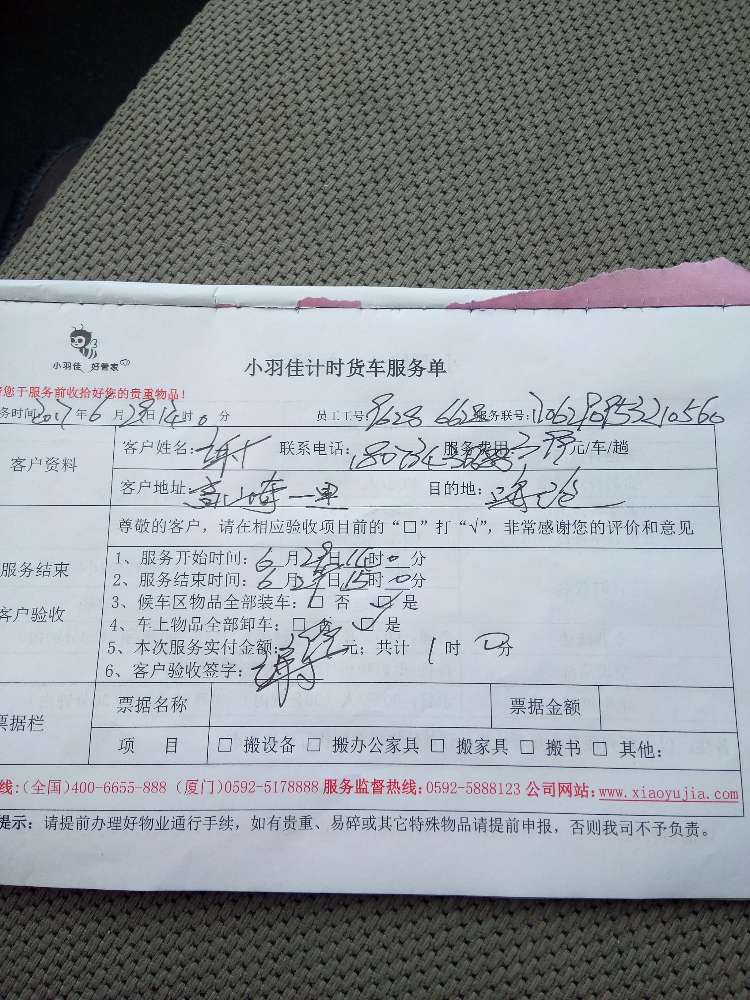 小羽佳 好管家
小羽佳计时货车服务单
您于服务前收拾好您的贵重物品!
务时间:2017年6月28日14时0分 员工工号:9628 6628 服务联号:
客户资料
客户姓名: 联系电话: 服务费用: 元/车/趟
客户地址: 一里 目的地:
尊敬的客户,请在相应验收项目前的“口”打“√”,非常感谢您的评价和意见
服务结束
客户验收
1、服务开始时间:6月28日14时0分
2、服务结束时间:6月28日15时0分
3、候车区物品全部装车:□ 否 □ 是
4、车上物品全部卸车:□ 否 □ 是
5、本次服务实付金额: 元; 共计 1 时 0 分
6、客户验收签字:
票据栏
票据名称 票据金额
项 目 □ 搬设备 □ 搬办公家具 □ 搬家具 □ 搬书 □ 其他:
线:(全国)400-6655-888 (厦门)0592-5178888 服务监督热线:0592-5888123 公司网站:www.xiaoyujia.com
提示: 请提前办理好物业通行手续,如有贵重、易碎或其它特殊物品请提前申报,否则我司不予负责。